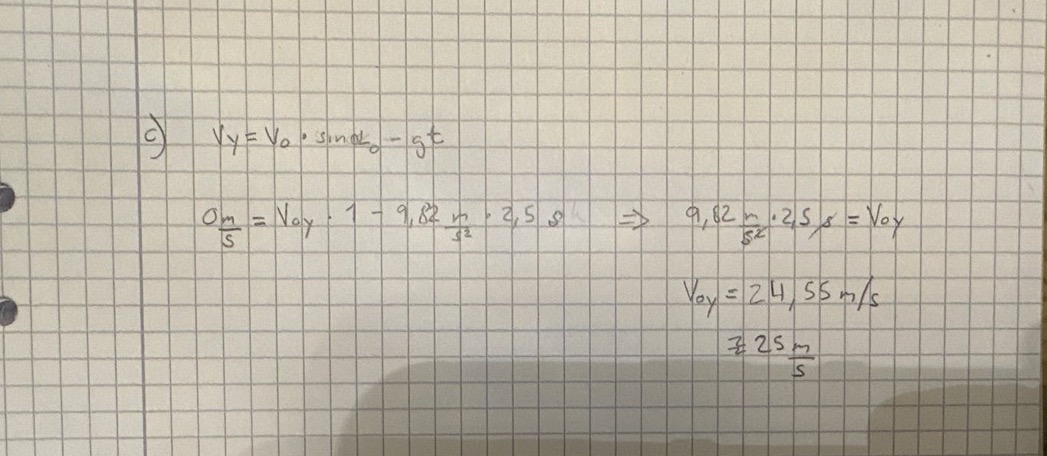 c) Vy = V₀ · sinα₀ - gt
0 m/s = V₀y · 1 - 9,82 m/s² · 2,5 s ⇒ 9,82 m/s² · 2,5 s = V₀y
V₀y = 24,55 m/s
≈ 25 m/s